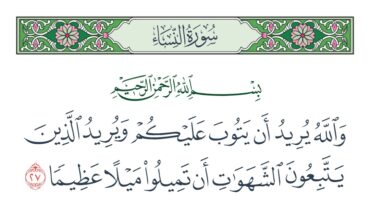 سُورَةُ النِّسَاءِ
بِسْمِ اللَّهِ الرَّحْمَٰنِ الرَّحِيمِ
وَاللَّهُ يُرِيدُ أَن يَتُوبَ عَلَيْكُمْ وَيُرِيدُ الَّذِينَ
يَتَّبِعُونَ الشَّهَوَاتِ أَن تَمِيلُوا۟ مَيْلًا عَظِيمًا ٢٧